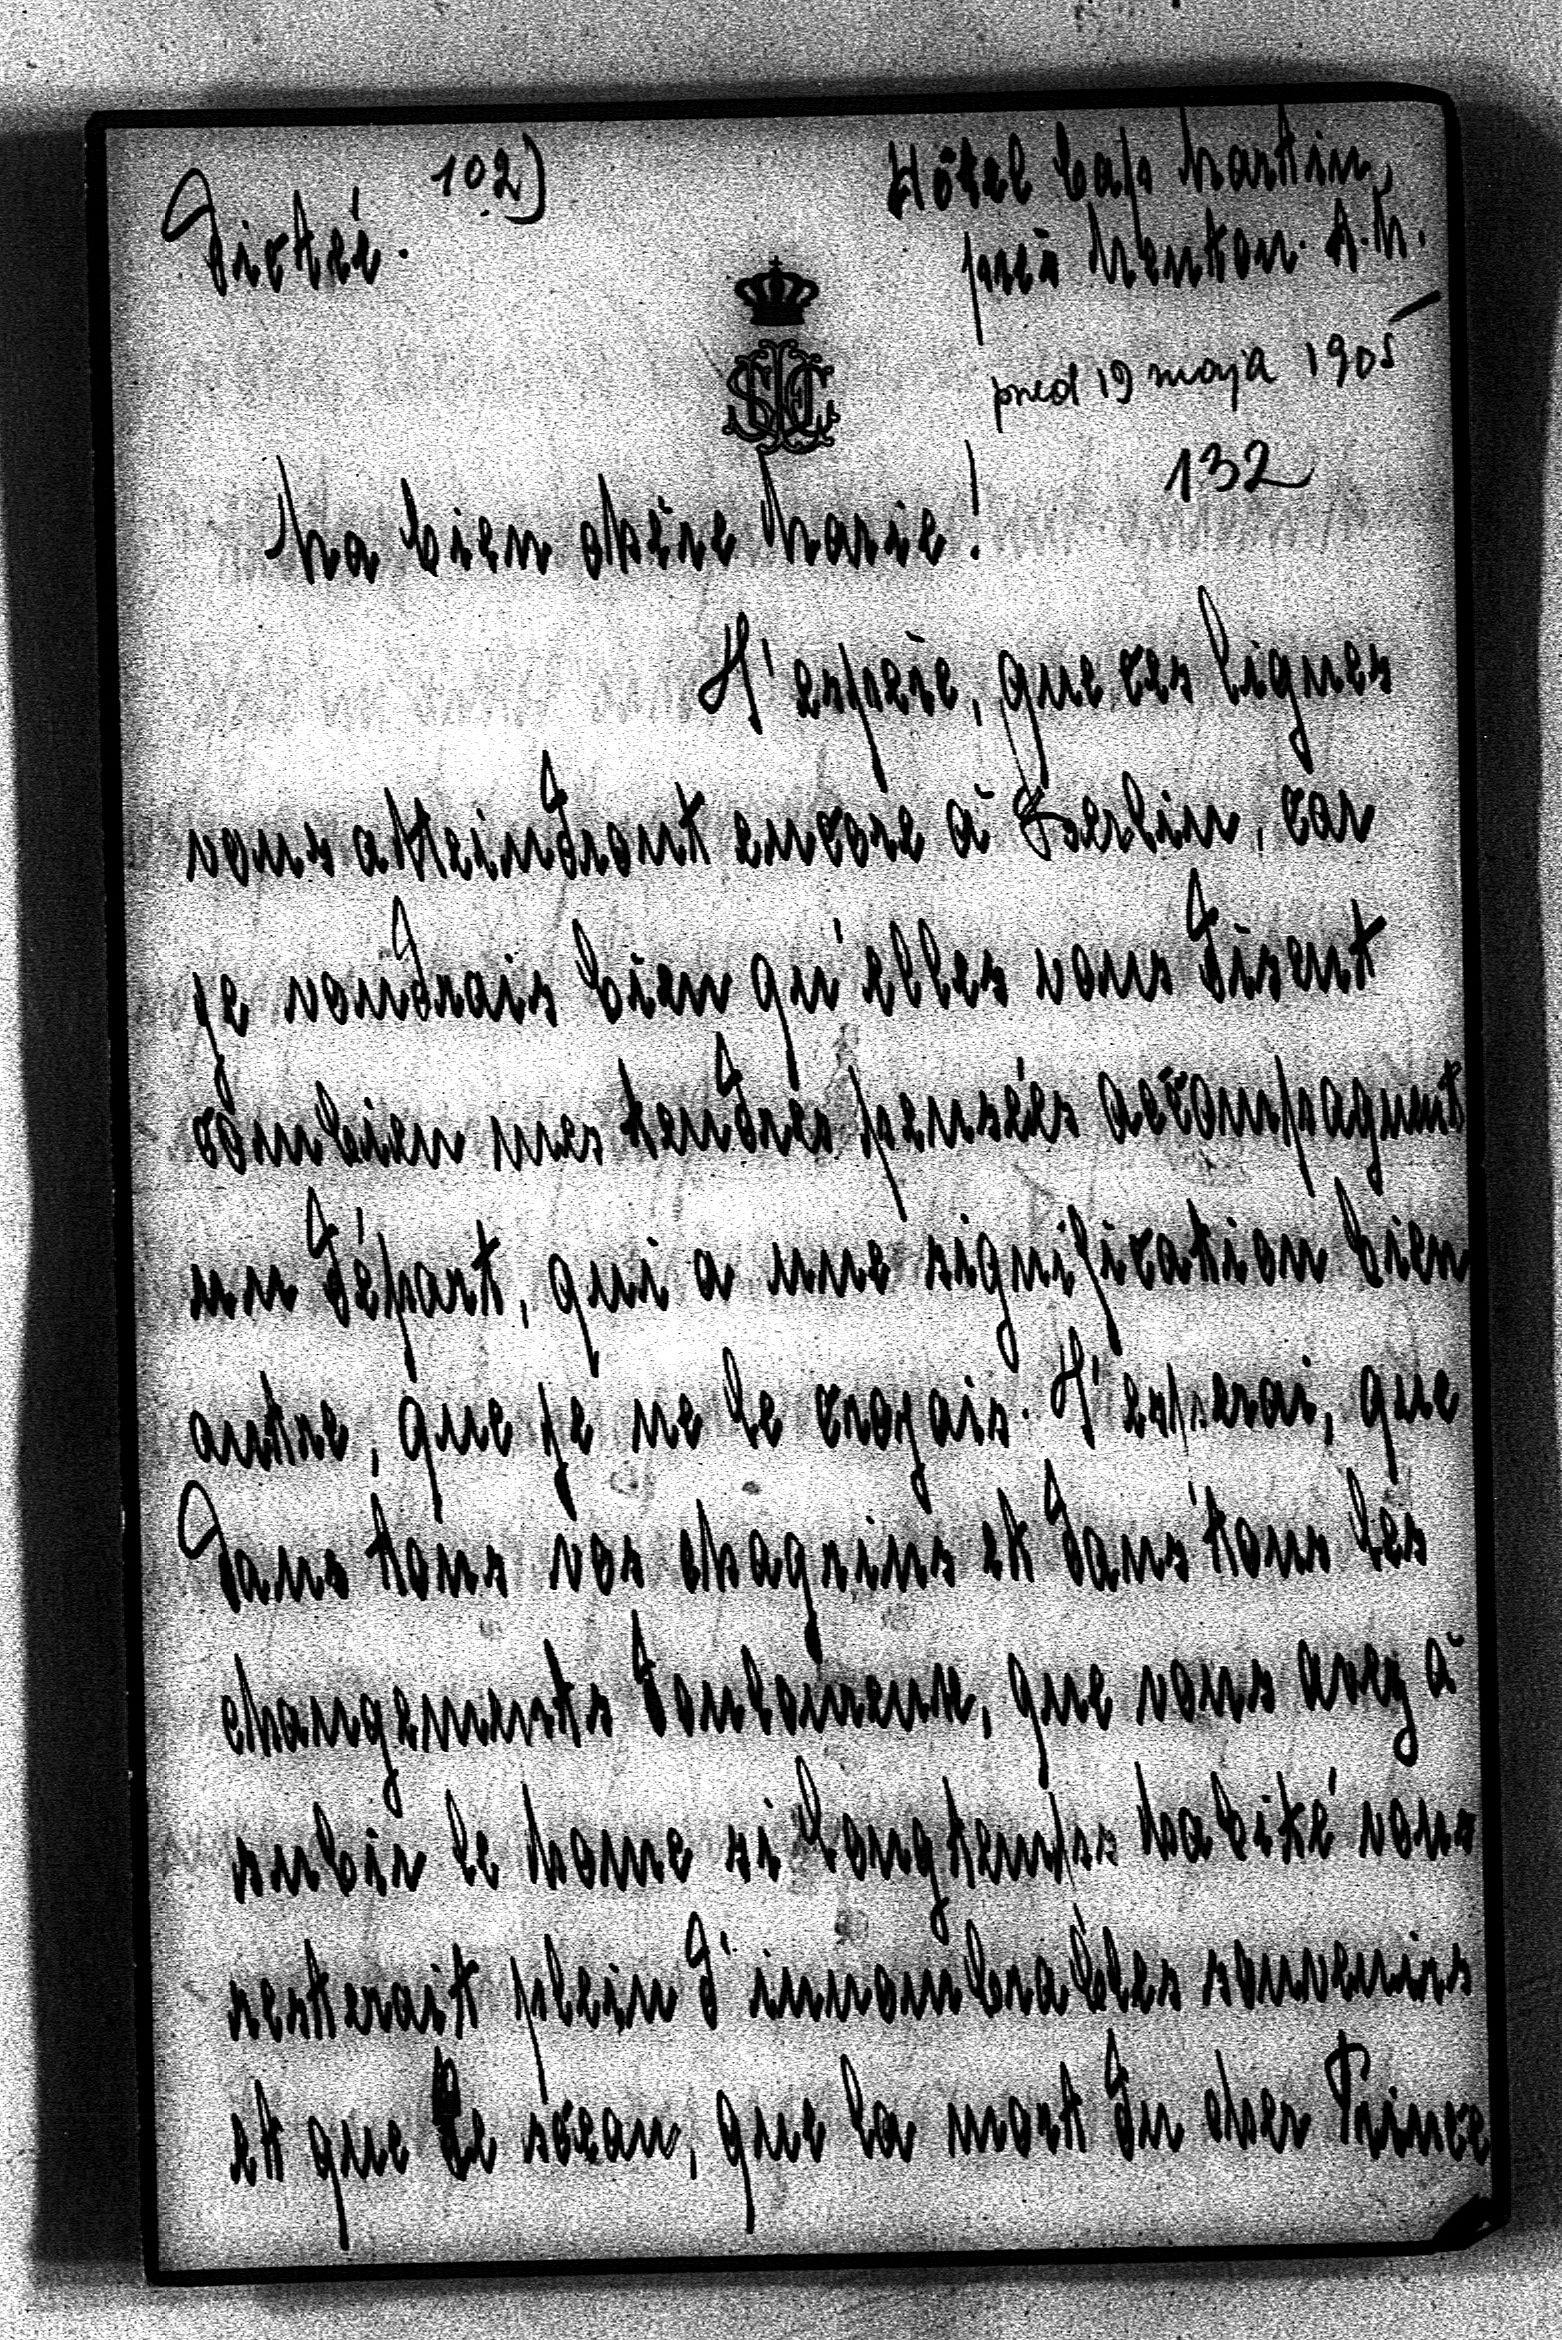 102)
Dictée.
Hôtel Cap Martin,
près Menton. A.M.
pred 19 maja 1905
132
Ma bien chère Marie!
J'espère, que ces lignes
vous atteindront encore à Berlin, car
je voudrais bien qu'elles vous disent
combien mes tendres pensées accompagnent
un départ, qui a une signification bien
autre, que je ne le croyais. J'esperai, que
dans tous vos chagrins et dans tous les
changements douloureux, que vous avez à
subir le home si longtemps habité vous
resterait plein d'innombrables souvenirs
et que le sceau, que la mort du cher Prince